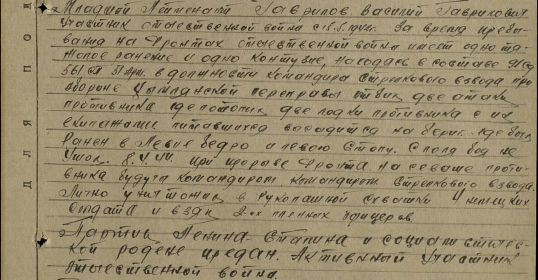 Младший Лтитенант Гаврилов Василий Гаврилович
участник отечественной война с 15.5.1942г. За время пребы-
вания на Фронтах отечественной войны имеет одно тя-
желое ранение и одно контузие, находясь в составе
561 сп в должности командира стрелкового взвода при
обороне Цымлянской переправы отбил две атаки
противника где потопил две лодки противника с их
экипажами питавшихся высадится на берег. где был
Ранен в Левие бедро и левою Стопу. С поля боя не
ушол. 8.V.44. при прорыве Фронта на севаше проти-
вника будучи командиром Стрелкового взвода.
Лично уничтожил в рукопашной схвашки 4 немецких
солдата и взял 2-ох пленных офицеров.
Партии Ленина-Сталина и социалистичес-
кой родене предан. Активный участник
отечественной война.
ДЛЯ ПОД